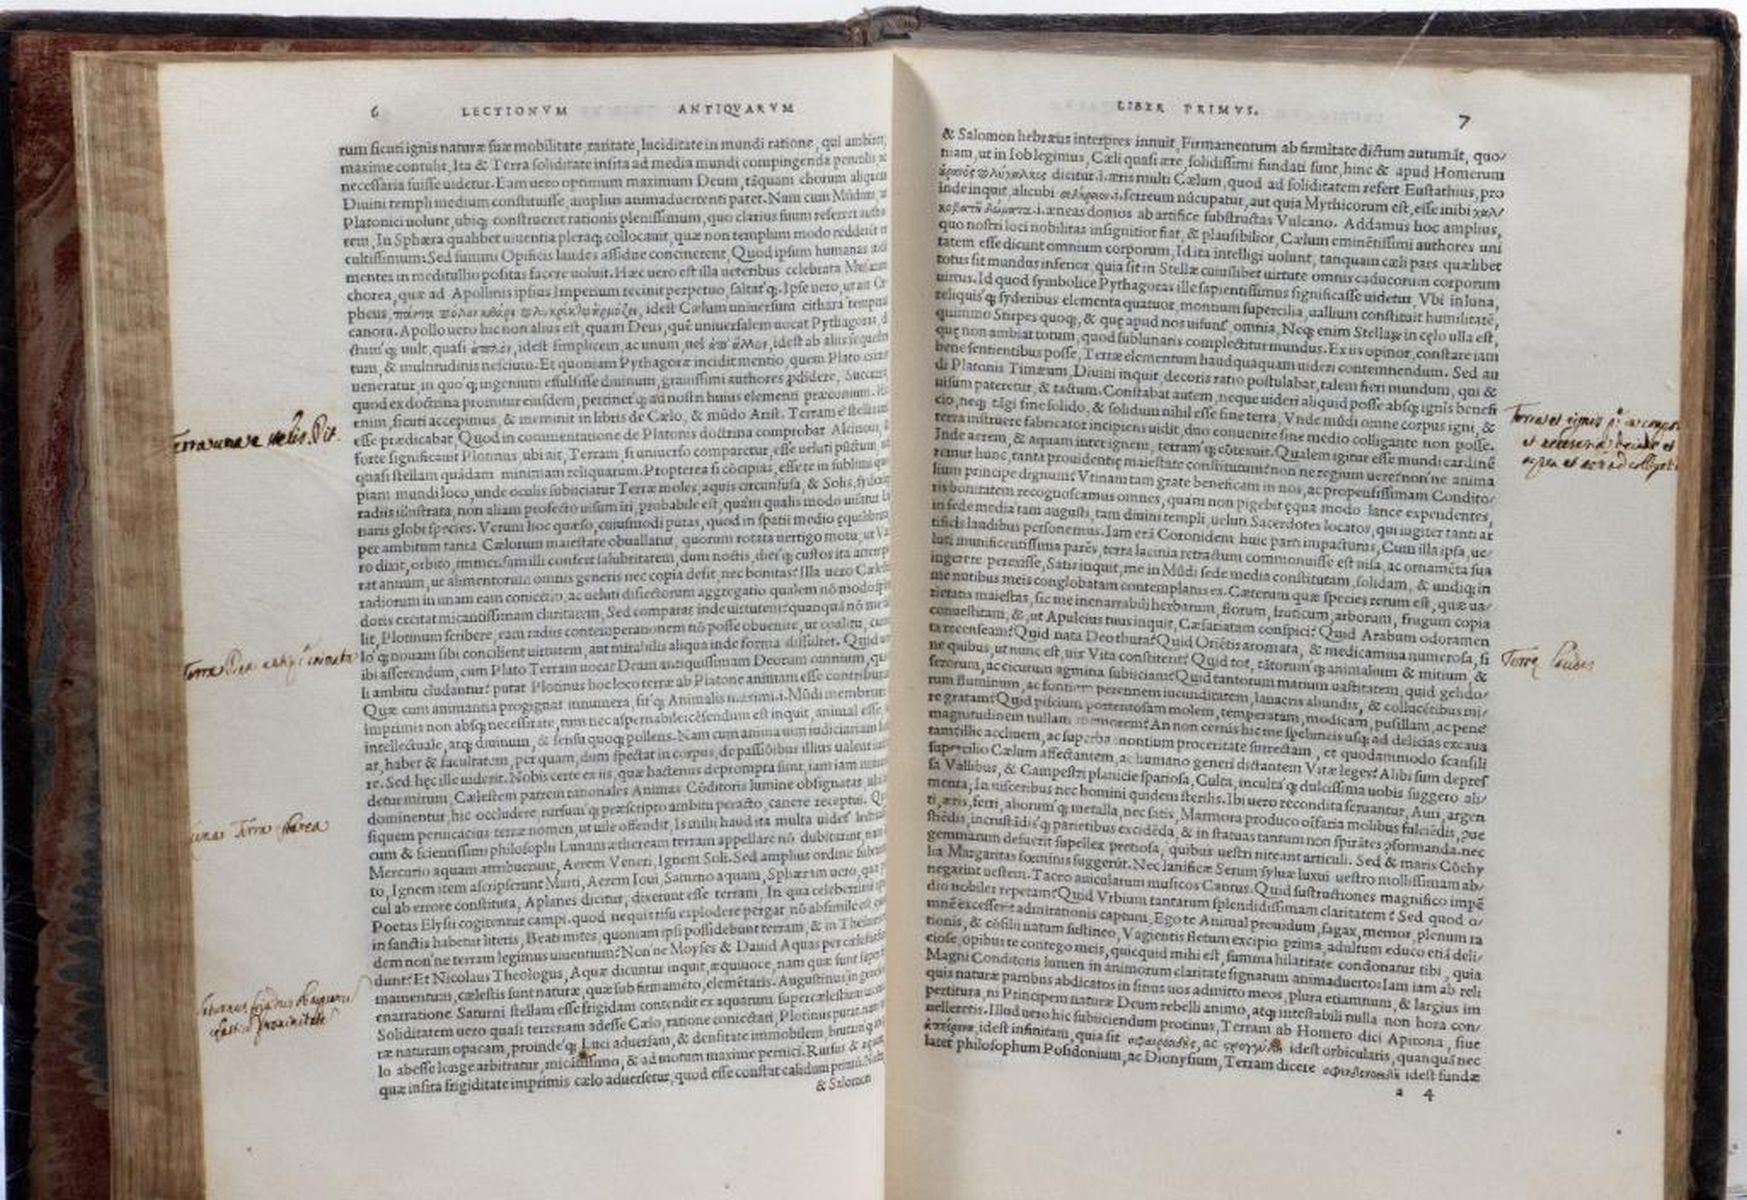 6 LECTIONVM ANTIQVARVM
rum sicuti ignis naturæ suæ mobilitate, raritate, luciditate in mundi ratione, qui ambitu
maxime contulit, Ita & Terra soliditate insita ad media mundi compingenda
necessaria fuisse uidetur. Eam uero optimum maximum Deum, tãquam chorum aliquem
Diuini templi medium constituisse, amplius animaduertenti patet. Nam cum Mũdum
Platonici uolunt, ubiq; construeret rationis plenissimum, quo clarius suum referret
rem, In Sphæra qualibet uiuentia pleraq; collocauit, quæ non templum modo redderent
cultissimum: Sed summi Opificis laudes assidue concinerent, Quod ipsum humanas
mentes in meditullio positas facere uoluit. Hæc uero est illa ueteribus celebrata Musarum
chorea, quæ ad Apollinis ipsius Imperium recinit perpetuo, saltat q;. Ipse uero, ut ait Or
pheus, idest Cælum uniuersum cithara temperas
canora. Apollo uero hic non alius est, quam Deus, quẽ uniuersalem uocat Pythagoras,
ctum q; uult, quasi idest simplicem, ac unum, uel idest ab aliis
tum, & multitudinis nescium. Et quoniam Pythagoræ incidit mentio, quem Plato
ueneratur, in quo q; ingenium effulsisse diuinum, grauissimi authores ꝓdidere,
quod ex doctrina promitur eiusdem, pertinet q; ad nostri huius elementi præconium.
enim, sicuti accepimus, & meminit in libris de Cælo, & mũdo Arist. Terram ẽ stellarum
esse prædicabat, Quod in commentatione de Platonis doctrina comprobat Alcinous,
forte significauit Plotinus, ubi ait, Terram, si uniuerso comparetur, esse ueluti pũctum,
quasi stellam quãdam minimam reliquarum. Propterea si cõcipias, esse te in sublimi
piam mundi loco, unde oculis subiiciatur Terræ moles, aquis circunfusa, & Solis,
radiis illustrata, non aliam profecto uisum iri, probabile est, quã qualis modo uisatur
naris globi species. Verum hoc quæso, cuiusmodi putas, quod in spatii medio ęquilibrata
per ambitum tanta Cælorum maiestate obuallatur, quorum rotata uertigo motu, ut
ro dixit, orbito, immensam illi confert salubritatem, dum noctis, diei q; custos ita
rat annum, ut alimentorum omnis generis nec copia desit, nec bonitas? Illa uero
radiorum in unam eam coniectio, ac ueluti disiectorum aggregatio qualem nõ modo
doris excitat micantissimam claritatem, Sed comparat inde uirtutem? quanquã nõ
lit, Plotinum scribere, eam radiis contemperationem nõ posse obuenire,
lo q; nouam sibi concilient uirtutem, aut mirabilis aliqua inde forma dissultet.
ibi asserendum, cum Plato Terram uocat Deam antiquissimam Deorum omnium,
li ambitu cludantur? putat Plotinus hoc loco terræ ab Platone animam esse
Quæ cum animantia progignat innumera, sit q; Animalis maximi .i. Mũdi membrum
Imprimis non absq; necessitate, tum nec aspernabile cẽsendum est inquit, animal esse
intellectuale, atq; diuinum, & sensu quoq; pollens. Nam cum anima uim iudiciariam
at, habet & facultatem, per quam, dum spectat in corpus, de passiõibus illius
re. Sed hęc ille uiderit. Nobis certe ex iis, quæ hactenus deprompta sunt, iam iam
detur mirum, Cælestem patrem rationales Animas Cõditoris lumine obsignatas
dominentur, hic occludere, rursum q; præscripto ambitu peracto, canere receptui.
siquem peruicacius terræ nomen, ut uile offendit, Is mihi haud ita multa uidet
cum & scientissimi philosophi Lunam ætheream terram appellare nõ dubitarint,
Mercurio aquam attribuerint, Aerem Veneri, Ignem Soli. Sed amplius ordine
to, Ignem item ascripserunt Marti, Aerem Ioui, Saturno aquam, Sphæram uero, quæ
cul ab errore constituta, Aplanes dicitur, dixerunt esse terram, In qua celeberrimi
Poetas Elysii cogitentur campi. quod nequis risu explodere pergat, nõ absimile est
in sanctis habetur literis, Beati mites, quoniam ipsi possidebunt terram, & in
dem non ne terram legimus uiuentium? Non ne Moyses & Dauid Aquas
dunt? Et Nicolaus Theologus, Aquæ dicuntur inquit, æquiuoce, nam quæ sunt
mamentum, cælestis sunt naturæ, quæ sub firmamẽto, elemẽtaris. Augustinus in
enarratione Saturni stellam esse frigidam contendit ex aquarum supercælestium
Soliditatem uero quasi terrenam adesse Cælo, ratione coniectati, Plotinus putat
ræ naturam opacam, proinde q; Luci aduersam, & densitate immobilem, brutam
lo abesse longe arbitratur, micãtissimo, & ad motum maxime pernici. Rursus &
quæ insita frigiditate imprimis cælo aduersetur, quod esse constat calidum
& Salomon
LIBER PRIMVS. 7
& Salomon hebræus interpres innuit, Firmamentum ab firmitate dictum autumãt, quo/
niam, ut in Iob legimus, Cæli quasi ære, solidissimi fundati sunt, hinc & apud Homerum
dicitur .i. æris multi Cælum, quod ad soliditatem refert Eustathius, pro
inde inquit, alicubi .i. ferreum nũcupatur, aut quia Mythicorum est, esse inibi
.i. æneas domos ab artifice substructas Vulcano. Addamus hoc amplius,
quo nostri loci nobilitas insignitior fiat, & plausibilior, Cælum eminẽtissimi authores uni
tatem esse dicunt omnium corporum, Id ita intelligi uolunt, tanquam cæli pars quælibet
totus sit mundus inferior, quia sit in Stellæ cuiuslibet uirtute omnis caducorum corporum
uirtus. Id quod symbolice Pythagoras ille sapientissimus significasse uidetur, Vbi in luna,
reliquis q; syderibus elementa quatuor, montium supercilia, uallium constituit humilitatẽ,
quinimo Stirpes quoq;, & quę apud nos uisunt omnia, Neq; enim Stella in cęlo ulla est,
quę non ambiat totum, quod sublunaris complectitur mundus. Ex iis opinor, constare iam
bene sentientibus posse, Terræ elementum haudquaquam uideri contemnendum. Sed au
di Platonis Timæum, Diuini inquit, decoris ratio postulabat, talem fieri mundum, qui &
uisum pateretur, & tactum. Constabat autem, neque uideri aliquid posse absq; ignis benefi
cio, neq; tãgi sine solido, & solidum nihil esse sine terra, Vnde mũdi omne corpus igni, &
terra instruere fabricator incipiens uidit, duo conuenire sine medio colligante non posse.
Inde aerem, & aquam inter ignem, terram q; cõtexuit. Qualem igitur esse mundi cardinẽ
remur hunc, tanta prouidentię maiestate constitutum? non ne regium uere? non ne anima
lium principe dignum? Vtinam tam grate beneficam in nos, ac propensissimam Condito/
ris bonitatem recognoscamus omnes, quàm non pigebit ęqua modo lance expendentes,
in sede media tam augusti, tam diuini templi, ueluti Sacerdotes locatos, qui iugiter tanti ar
tificis laudibus personemus. Iam erã Coronidem huic parti impacturus, Cum illa ipsa, ue/
luti munificentissima parẽs, terra lacinia retractum commonuisse est uisa, ac ornamẽta sua
ingerere perexisse, Satis inquit, me in Mũdi sede media constitutam, solidam, & undiq; in
me nutibus meis conglobatam contemplatus es. Cæterum quæ species rerum est, quæ ua/
rietatis maiestas, sic me inenarrabili herbarum, florum, fruticum, arborum, frugum copia
conuestitam, &, ut Apuleius tuus inquit, Cæsariatam conspici? Quid Arabum odoramen
ta recenseam? Quid nata Deo thura? Quid Oriẽtis aromata, & medicamina numerosa, si
ne quibus, ut nunc est, uix Vita constiterit? Quid tot, tãtorum q; animalium & mitium, &
ferorum, ac cicurum agmina subiiciam? Quid tantorum marium uastitatem, quid gelido/
rum fluminum, ac fontium perennem iucunditatem, lauacris abundis, & collucẽtibus mi/
re gratam? Quid piscium portentosam molem, temperatam, modicam, pusillam, ac pene
magnitudinem nullam memorem? An non cernis hic me speluncis usq; ad delicias excaua
tam? illic accliuem, ac superba montium proceritate surrectam, et quodammodo scansili
supercilio Cælum affectantem, ac humano generi dictantem Vitæ leges? Alibi sum depres
sa Vallibus, & Campestri planicie spatiosa, Culta, inculta q; dulcissima uobis suggero ali/
menta, In uisceribus nec homini quidem sterilis. Ibi uero recondita seruantur, Auri, argen
ti, æris, ferri, aliorum q; metalla, nec satis, Marmora produco oĩfaria molibus fulciẽdis, pauẽ
stiẽdis, incrustãdis q; parietibus excidẽda, & in statuas tantum non spirãtes ꝓformanda. nec
gemmarum defuerit supellex pretiosa, quibus uestri niteant articuli. Sed & maris Cõchy
lia Margaritas fœminis suggerũt. Nec lanificæ Serum syluæ luxui uestro mollissimam ab/
negarint uestem. Taceo auicularum musicos Cantus. Quid sustructiones magnifico impẽ
dio nobiles repetam? Quid Vrbium tantarum splendidissimam claritatem? Sed quod o/
mnẽ excesserit admirationis captum, Ego te Animal prouidum, sagax, memor, plenum ra
tionis, & cõsilii natum sustineo, Vagientis fletum excipio prima, adultum educo etiã deli/
ciose, opibus te contego meis, quicquid mihi est, summa hilaritate condonatur tibi, quia
Magni Conditoris lumen in animorum claritate signatum animaduerto: Iam iam ab reli
quis naturæ partibus abdicatos in sinus uos admitto meos, plura etiamnum, & largius im
pertitura, ni Principem naturæ Deum rebelli animo, atq; intestabili nulla non hora con/
uelleretis. Illud uero hic subiiciendum protinus, Terram ab Homero dici Apirona, siue
idest infinitam, quia sit ac idest orbicularis, quanquã nec
latet philosophum Posidonium, ac Dionysium, Terram dicere idest fundæ
a 4
Terra una e stelis. Pit.
Terra Dea antiqᵃ animata
Luna Terra ætherea
Terra et ignis
et
Terrę laudes